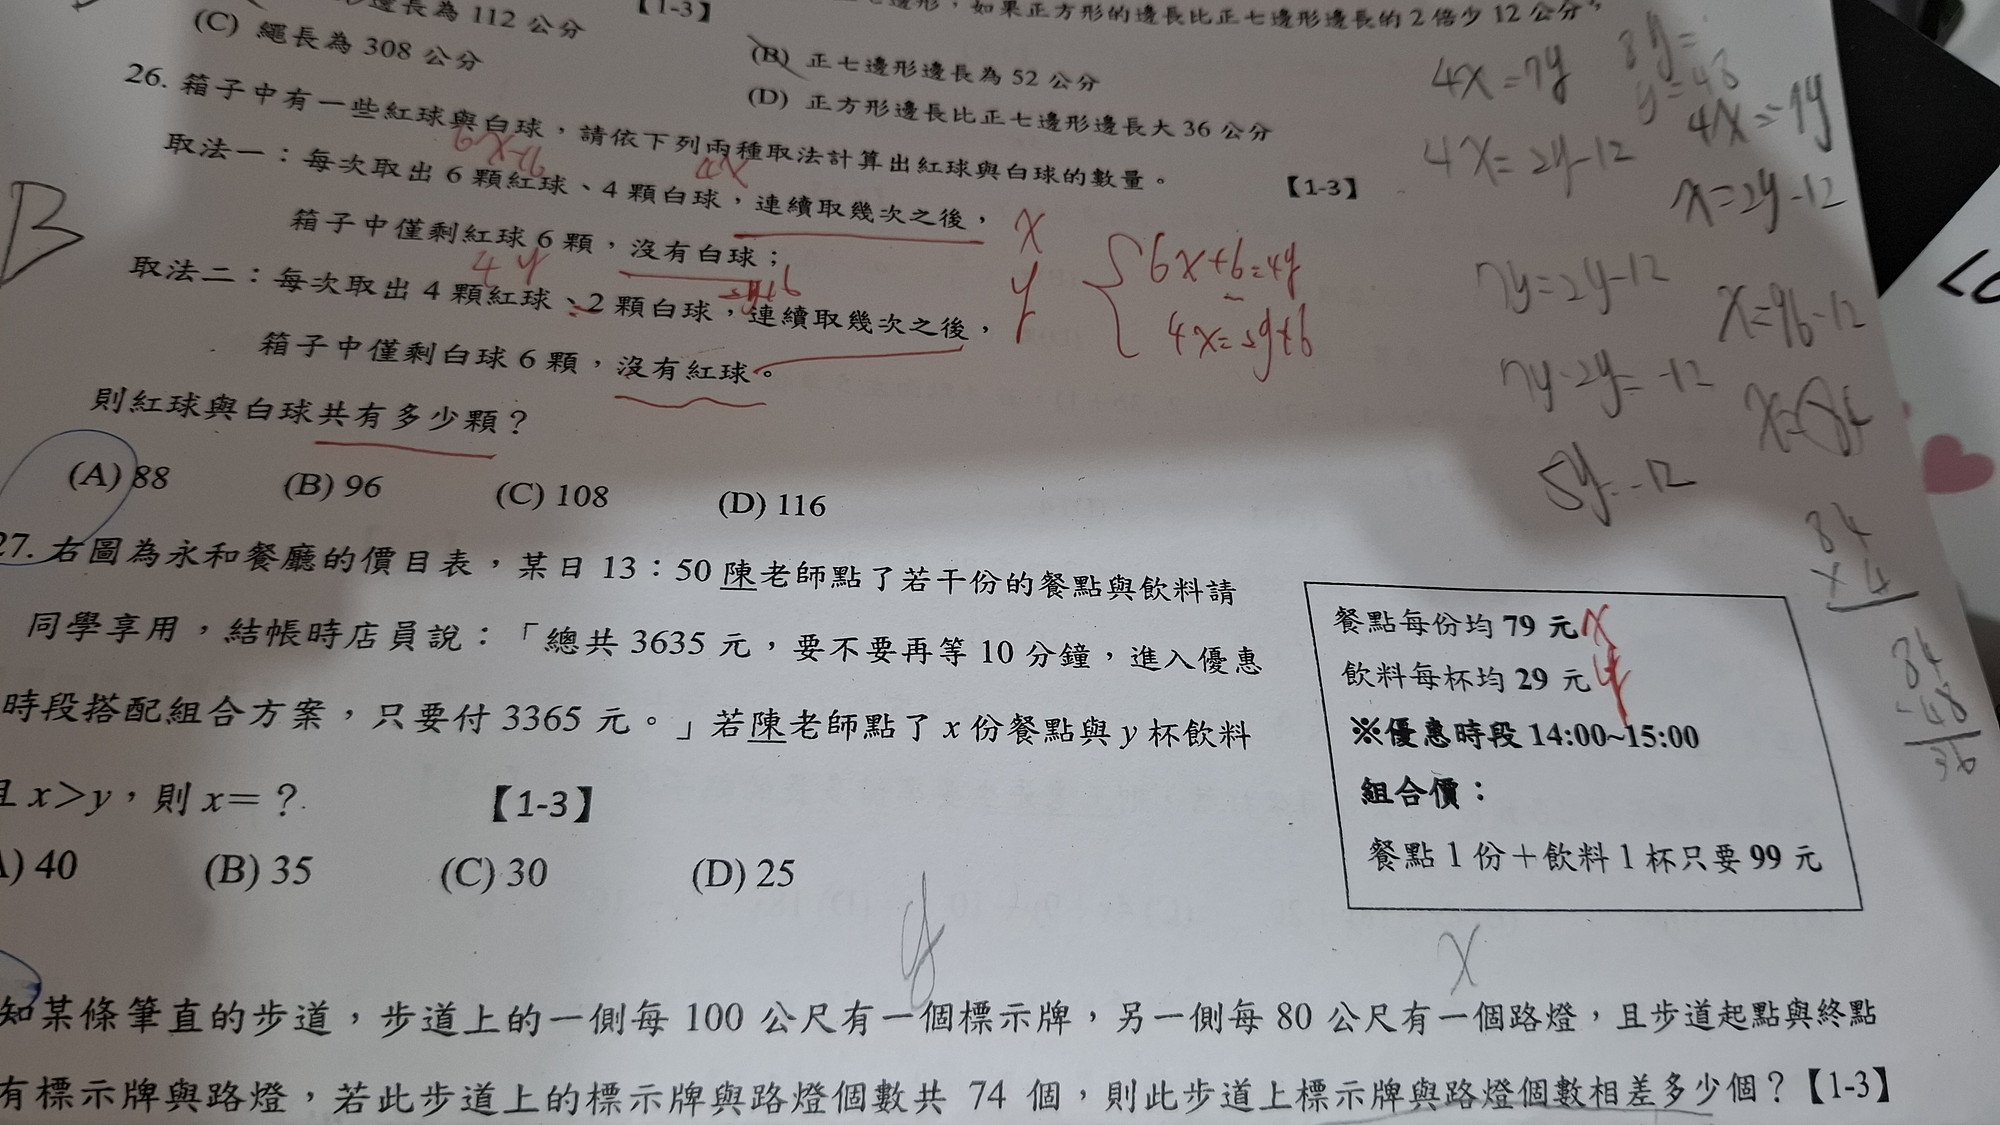 邊長為 112 公分
【1-3】
如果正方形的邊長比正七邊形邊長的 2 倍少 12 公分,
(C) 繩長為 308 公分
(B) 正七邊形邊長為 52 公分
(D) 正方形邊長比正七邊形邊長大 36 公分
26. 箱子中有一些紅球與白球,請依下列兩種取法計算出紅球與白球的數量。
【1-3】
6x+6
4x
取法一:每次取出 6 顆紅球、4 顆白球,連續取幾次之後,
箱子中僅剩紅球 6 顆,沒有白球;
x
4y
取法二:每次取出 4 顆紅球、2 顆白球,連續取幾次之後,
y
箱子中僅剩白球 6 顆,沒有紅球。
6x+6=4y
4x=2y+6
則紅球與白球共有多少顆?
(A) 88 (B) 96 (C) 108 (D) 116
B
4x=7y
4x=2y-12
7y=2y-12
7y-2y=-12
5y=-12
8y=
y=48
4x=7y
x=2y-12
x=96-12
x=84
84
×4
84
-48
36
27. 右圖為永和餐廳的價目表,某日 13:50 陳老師點了若干份的餐點與飲料請
同學享用,結帳時店員說:「總共 3635 元,要不要再等 10 分鐘,進入優惠
時段搭配組合方案,只要付 3365 元。」若陳老師點了 x 份餐點與 y 杯飲料
且 x>y,則 x=?
【1-3】
A) 40 (B) 35 (C) 30 (D) 25
餐點每份均 79 元 x
飲料每杯均 29 元 y
※優惠時段 14:00~15:00
組合價:
餐點 1 份+飲料 1 杯只要 99 元
y
x
知某條筆直的步道,步道上的一側每 100 公尺有一個標示牌,另一側每 80 公尺有一個路燈,且步道起點與終點
有標示牌與路燈,若此步道上的標示牌與路燈個數共 74 個,則此步道上標示牌與路燈個數相差多少個?【1-3】